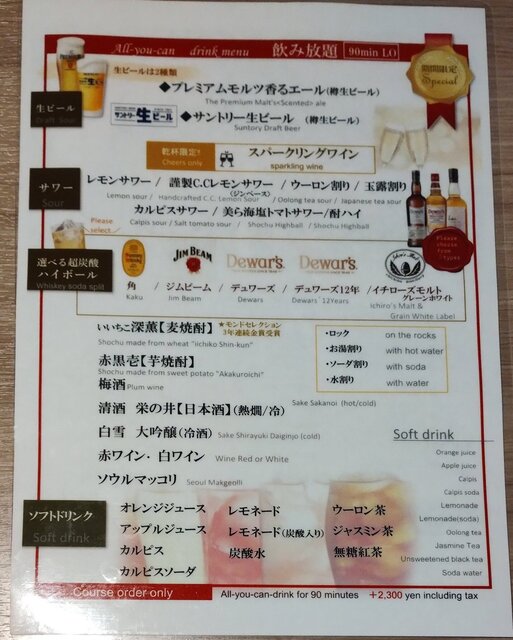 All-you-can drink menu 飲み放題 90min LO
生ビールは2種類
期間限定
Special
◆プレミアムモルツ香るエール(樽生ビール)
The Premium Malt's<Scented> ale
生ビール
Draft Sour
サントリー 生ビール
◆サントリー生ビール (樽生ビール)
Suntory Draft Beer
乾杯限定!
Cheers only
スパークリングワイン
sparkling wine
サワー
Sour
レモンサワー / 謹製C.Cレモンサワー / ウーロン割り / 玉露割り
(ジンベース)
Lemon sour / Handcrafted C.C. Lemon Sour / Oolong tea sour / Japanese tea sour
カルピスサワー / 美ら海塩トマトサワー / 酎ハイ
Calpis sour / Salt tomato sour / Shochu Highball / Shochu Highball
Please select
Please choose from
選べる超炭酸
ハイボール
Whiskey soda split
JIM BEAM
Dewar's
Dewar's
角 / ジムビーム / デュワーズ / デュワーズ12年 / イチローズモルト
グレーンホワイト
Kaku / Jim Beam / Dewars / Dewars 12Years / Ichiro's Malt &
Grain White Label
いいちこ深薫【麦焼酎】 ★モンドセレクション
3年連続金賞受賞
Shochu made from wheat "iichiko Shin-kun"
赤黒壱【芋焼酎】
Shochu made from sweet potato "Akakuroichi"
・ロック on the rocks
・お湯割り with hot water
・ソーダ割り with soda
・水割り with water
梅酒 Plum wine
清酒 栄の井【日本酒】(熱燗/冷) Sake Sakanoi (hot/cold)
白雪 大吟醸(冷酒) Sake Shirayuki Daiginjo (cold)
赤ワイン・白ワイン Wine Red or White
ソウルマッコリ Seoul Makgeolli
ソフトドリンク
Soft drink
オレンジジュース レモネード ウーロン茶
アップルジュース レモネード(炭酸入り) ジャスミン茶
カルピス 炭酸水 無糖紅茶
カルピスソーダ
Soft drink
Orange juice
Apple juice
Calpis
Calpis soda
Lemonade
Lemonade(soda)
Oolong tea
Jasmine Tea
Unsweetened black tea
Soda water
Course order only All-you-can-drink for 90 minutes +2,300 yen including tax